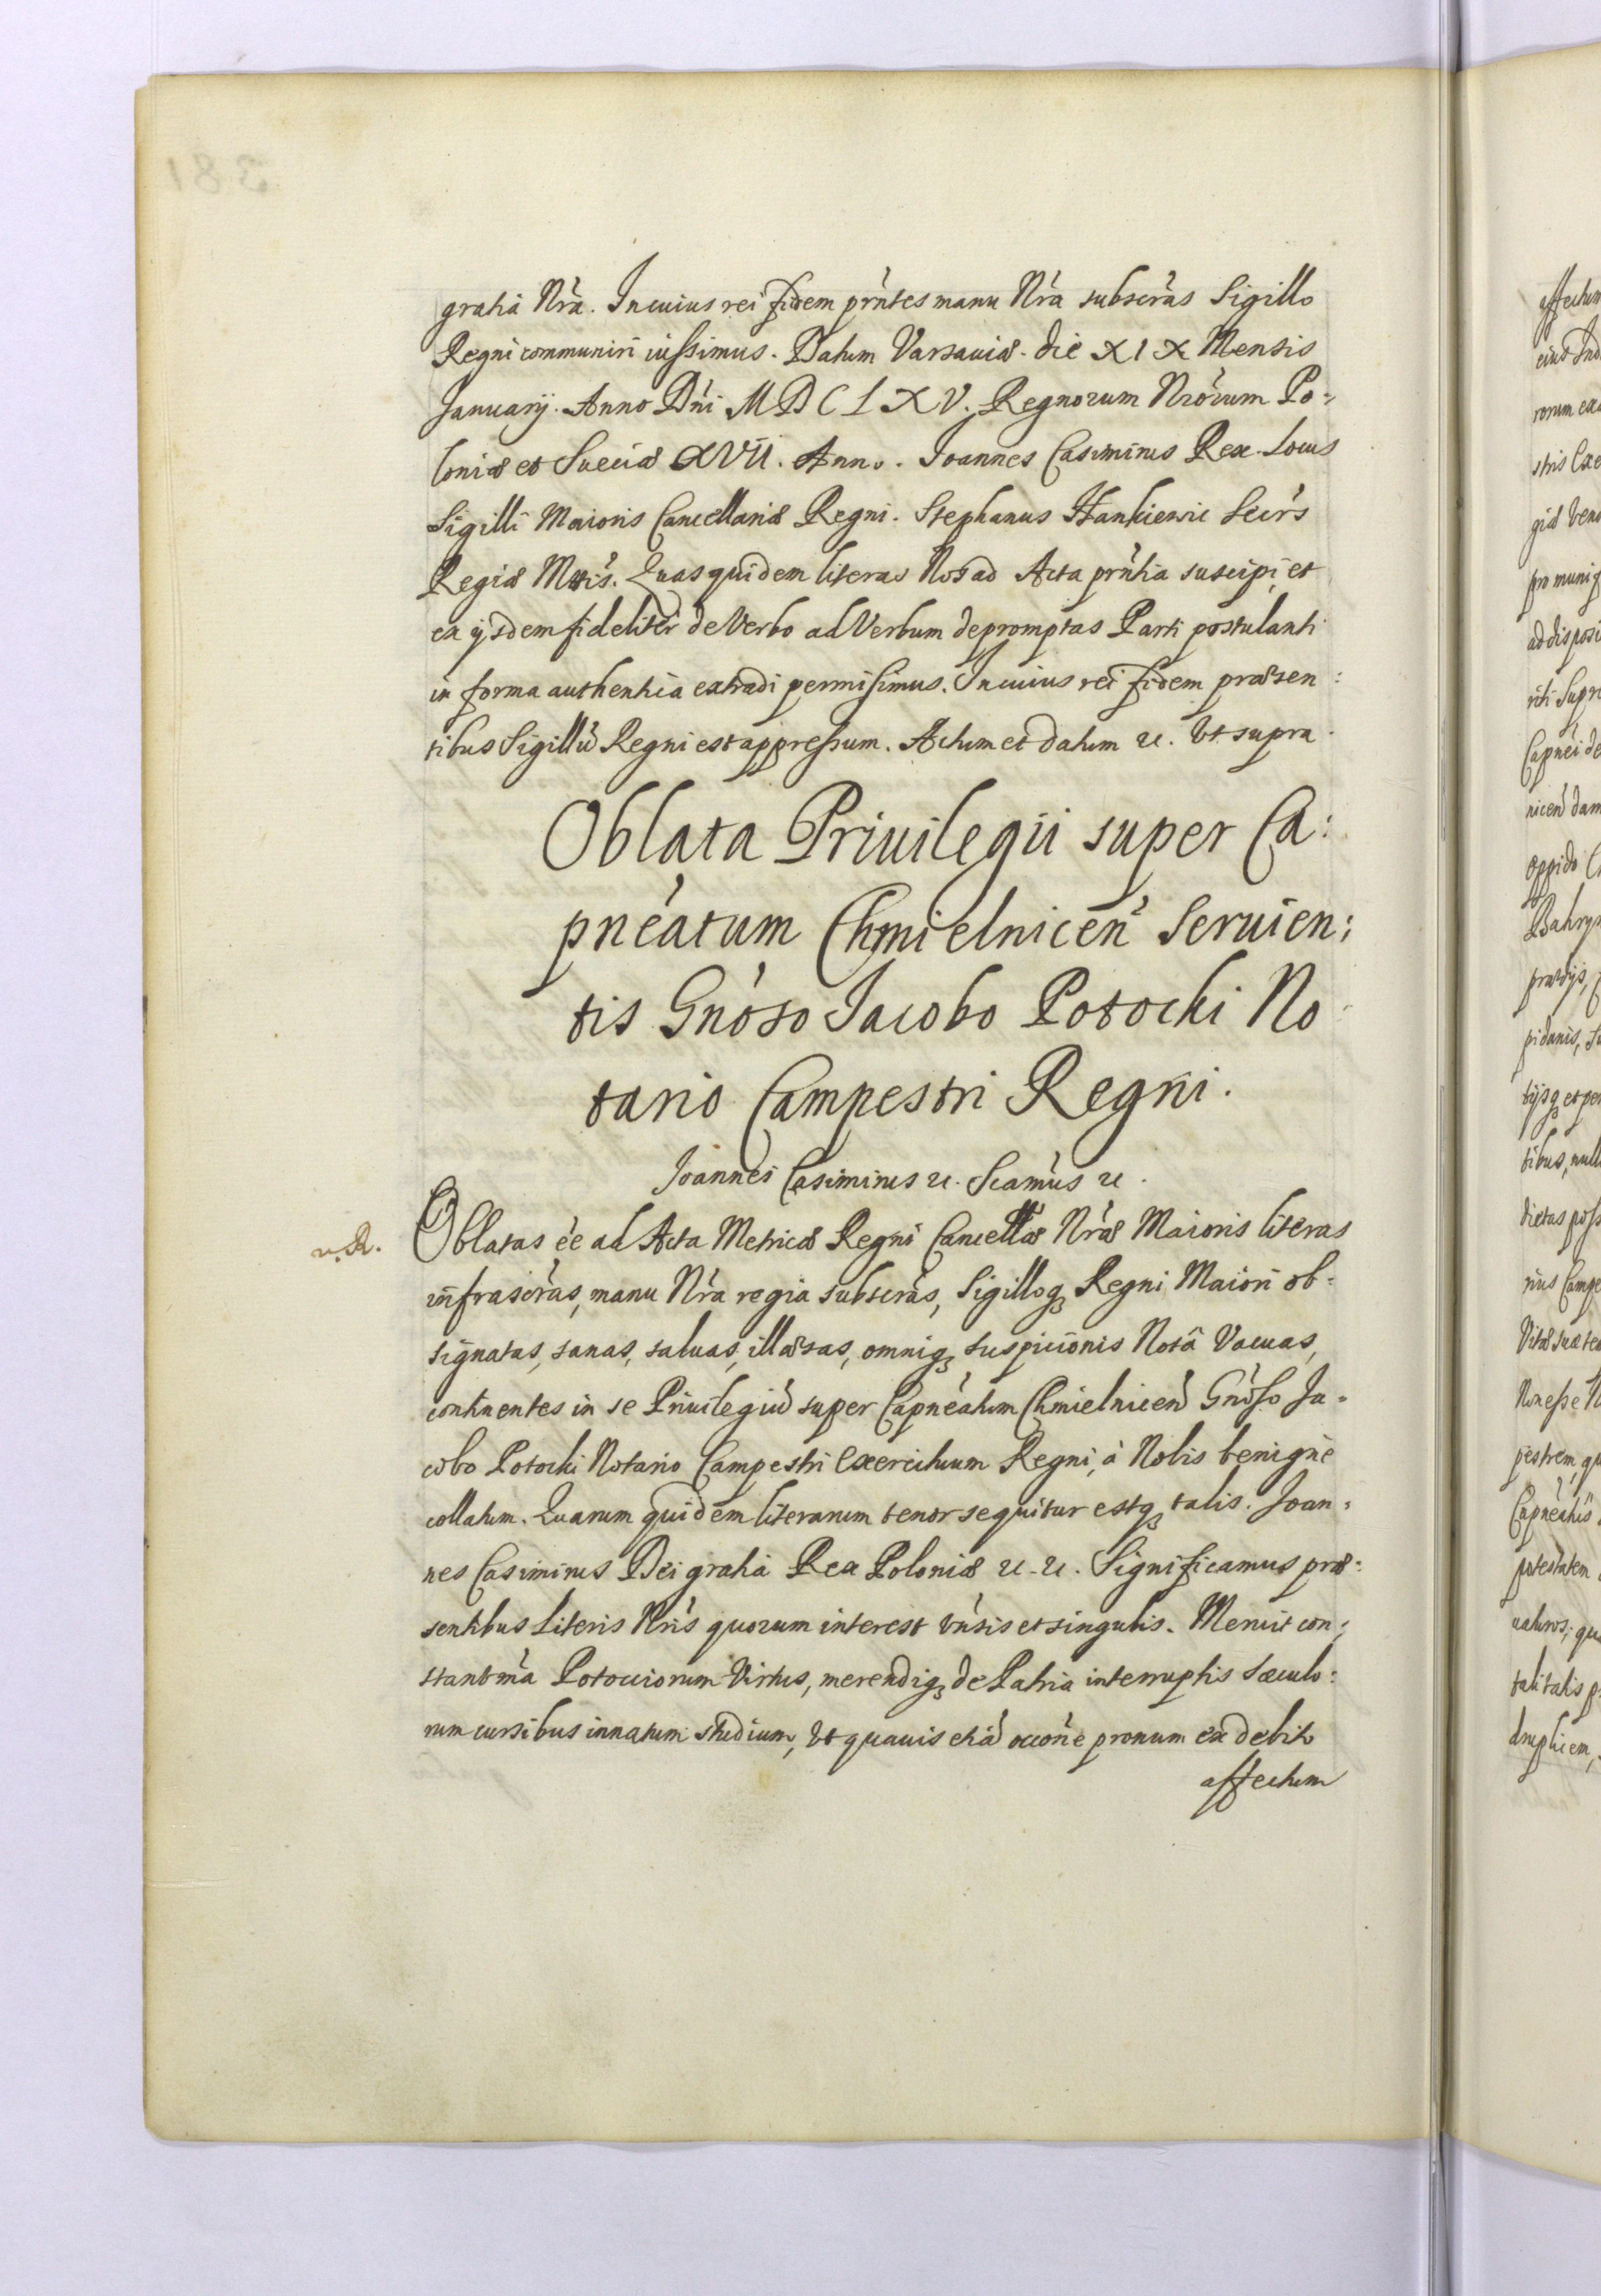 gratia Nrã. In cuius rei fidem prñtes manu Nrã subscrãs Sigillo
Regni communiri iussimus. Datum Varsauiæ. die XIX Mensis
Januarij. Anno Dñi MDCLXV. Regnorum Nrõrum Po=
loniæ et Sueciæ XVII. Anno. Joannes Casimirus Rex. Locus
Sigilli Maioris Cancellariæ Regni. Stephanus Hankiewic Secrs
Regiæ Mttis. Quas quidem literas Nos ad Acta prñtia suscipi, et
ex ijsdem fideliter de Verbo ad Verbum depromptas Parti postulanti
in forma authentica extradi permisimus. In cuius rei fidem præsen:
tibus Sigillũ Regni est appressum. Actum et datum etc. Vt supra.
Oblata Priuilegii super Ca:
pneãtum Chmielnicen Seruien:
tis Gnoso Jacobo Potocki No
tario Campestri Regni.
Joannes Casimirus etc. Scamus etc.
u. R. Oblatas ẽe ad Acta Metricæ Regni Cancellæ Nræ Maioris literas
infrascrãs, manu Nrã regia subscrãs, Sigilloqꝫ Regni Maiori ob=
signatas, sanas, saluas, illæsas, omniqꝫ suspicionis Notâ Vacuas,
continentes in se Priuilegiũ super Capneãtum Chmielnicen Gnoso Ja=
cobo Potocki Notario Campestri Exercituum Regni, à Nobis benignè
collatum. Quarum quidem literarum tenor sequitur estqꝫ talis. Joan=
nes Casimirus Dei gratia Rex Poloniæ etc. etc. Significamus præ:
sentibus Literis Nris quorum interest vnsis et singulis. Meruit con:
stantmã Potocciorum Virtus, merendiqꝫ de Patria interruptis Sæculo:
rum cursibus innatum studium, Vt quauis etiã occone pronum ex debito
affectum